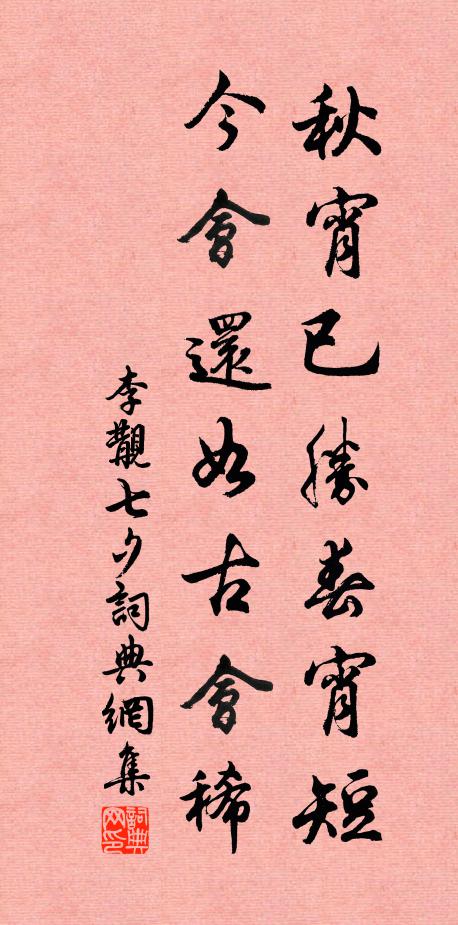 秋宵已勝春宵短
今會還如古會稀
李覯七夕詞典網集
詞典
网印